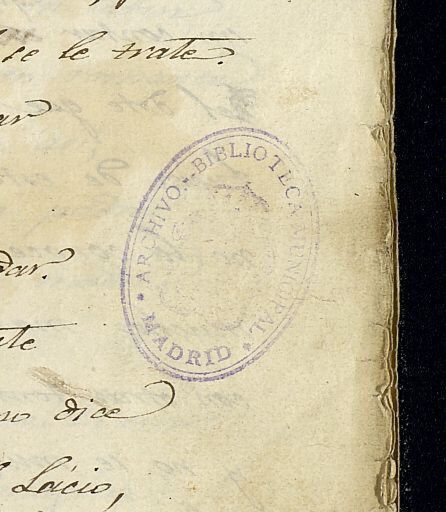 se le trate.
dar.
no dice
Lácio,
ARCHIVO-BIBLIOTECA MUNICIPAL
* MADRID *